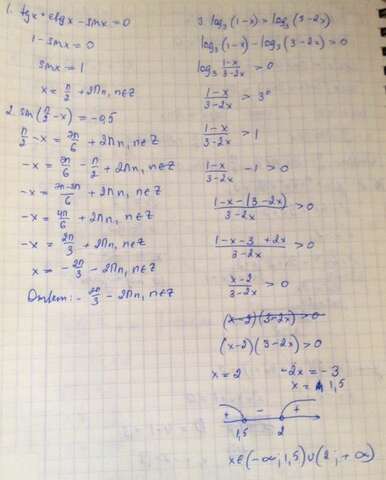 1. tgx * ctgx - sinx = 0
1 - sinx = 0
sinx = 1
x = π/2 + 2πn, n∈Z
2. sin(π/2 - x) = -0,5
π/2 - x = 7π/6 + 2πn, n∈Z
-x = 7π/6 - π/2 + 2πn, n∈Z
-x = 7π-3π/6 + 2πn, n∈Z
-x = 4π/6 + 2πn, n∈Z
-x = 2π/3 + 2πn, n∈Z
x = -2π/3 - 2πn, n∈Z
Ответ: -2π/3 - 2πn, n∈Z
3. log₃(1-x) > log₃(3-2x)
log₃(1-x) - log₃(3-2x) > 0
log₃ 1-x/3-2x > 0
1-x/3-2x > 3⁰
1-x/3-2x > 1
1-x/3-2x - 1 > 0
1-x-(3-2x)/3-2x > 0
1-x-3+2x/3-2x > 0
x-2/3-2x > 0
(x-2)(3-2x) > 0
(x-2)(3-2x) > 0
x = 2 -2x = -3
x = 1,5
+ - +
1,5 2
x∈(-∞, 1,5)∪(2, +∞)